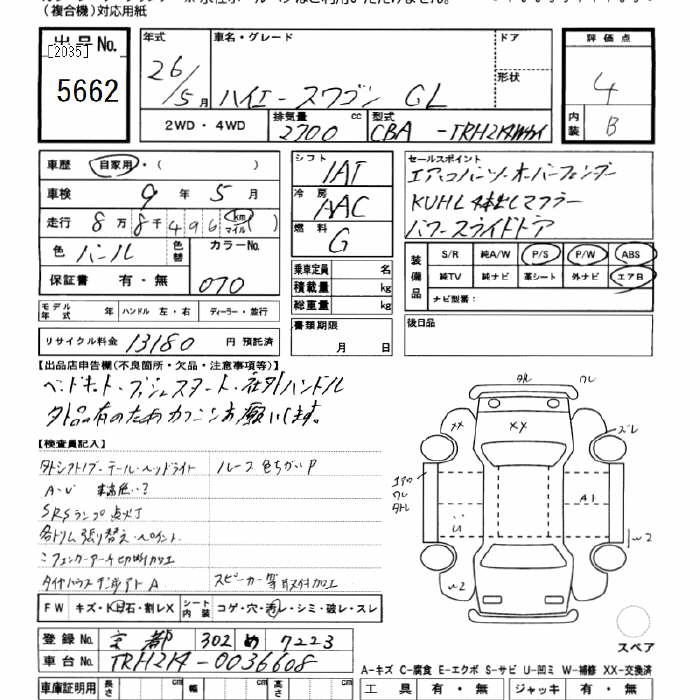 (複合機)対応用紙
出品No.
[2035]
5662
年式
26/5月
車名・グレード
ハイエースワゴン GL
ドア
形状
評価点
4
内装
B
2WD・4WD
排気量
2700
cc
型式
CBA
-TRH214W
車歴
自家用・( )
車検
9 年 5 月
走行
8万8千496
km
マイル
色
パール
色替
カラーNo.
070
保証書
有・無
シフト
IAT
冷房
AAC
燃料
G
乗車定員
名
積載量
kg
総重量
kg
書類期限
月 日
セールスポイント
エアロバンパー・オーバーフェンダー
KUHL 4本出しマフラー
パワースライドドア
装備品
S/R
純A/W
P/S
P/W
ABS
純TV
純ナビ
革シート
外ナビ
エアB
ナビ型番:
後日品
モデル年式
年
ハンドル 左・右
ディーラー・並行
リサイクル料金
13180
円 預託済
【出品店申告欄(不良箇所・欠品・注意事項等)】
ベッドキット・プッシュスタート・社外ハンドル
外品有のため カクニンお願いします。
【検査員記入】
外シフトノブ・テール・ヘッドライト
ルーフ 色ちがいP
A・V 車高低い?
SRSランプ点灯
各トリム張り替え・ペイント
フェンダーアーチ切断加工
タイヤハウス
A
スピーカー等取付加工
FW
キズ・ト飛石・割レX
シート内装
コゲ・穴・汚レ・シミ・破レ・スレ
登録No.
京都 302 め 7223
車台No.
TRH214-0036608
車庫証明用
長さ
cm
幅
cm
高さ
cm
タレ
ワレ
XX
XX
ズレ
エアロ
ワレ
タレ
A1
U
W2
W2
スペア
A-キズ C-腐食 E-エクボ S-サビ U-凹ミ W-補修 XX-交換済
工具
有・無
ジャッキ
有・無